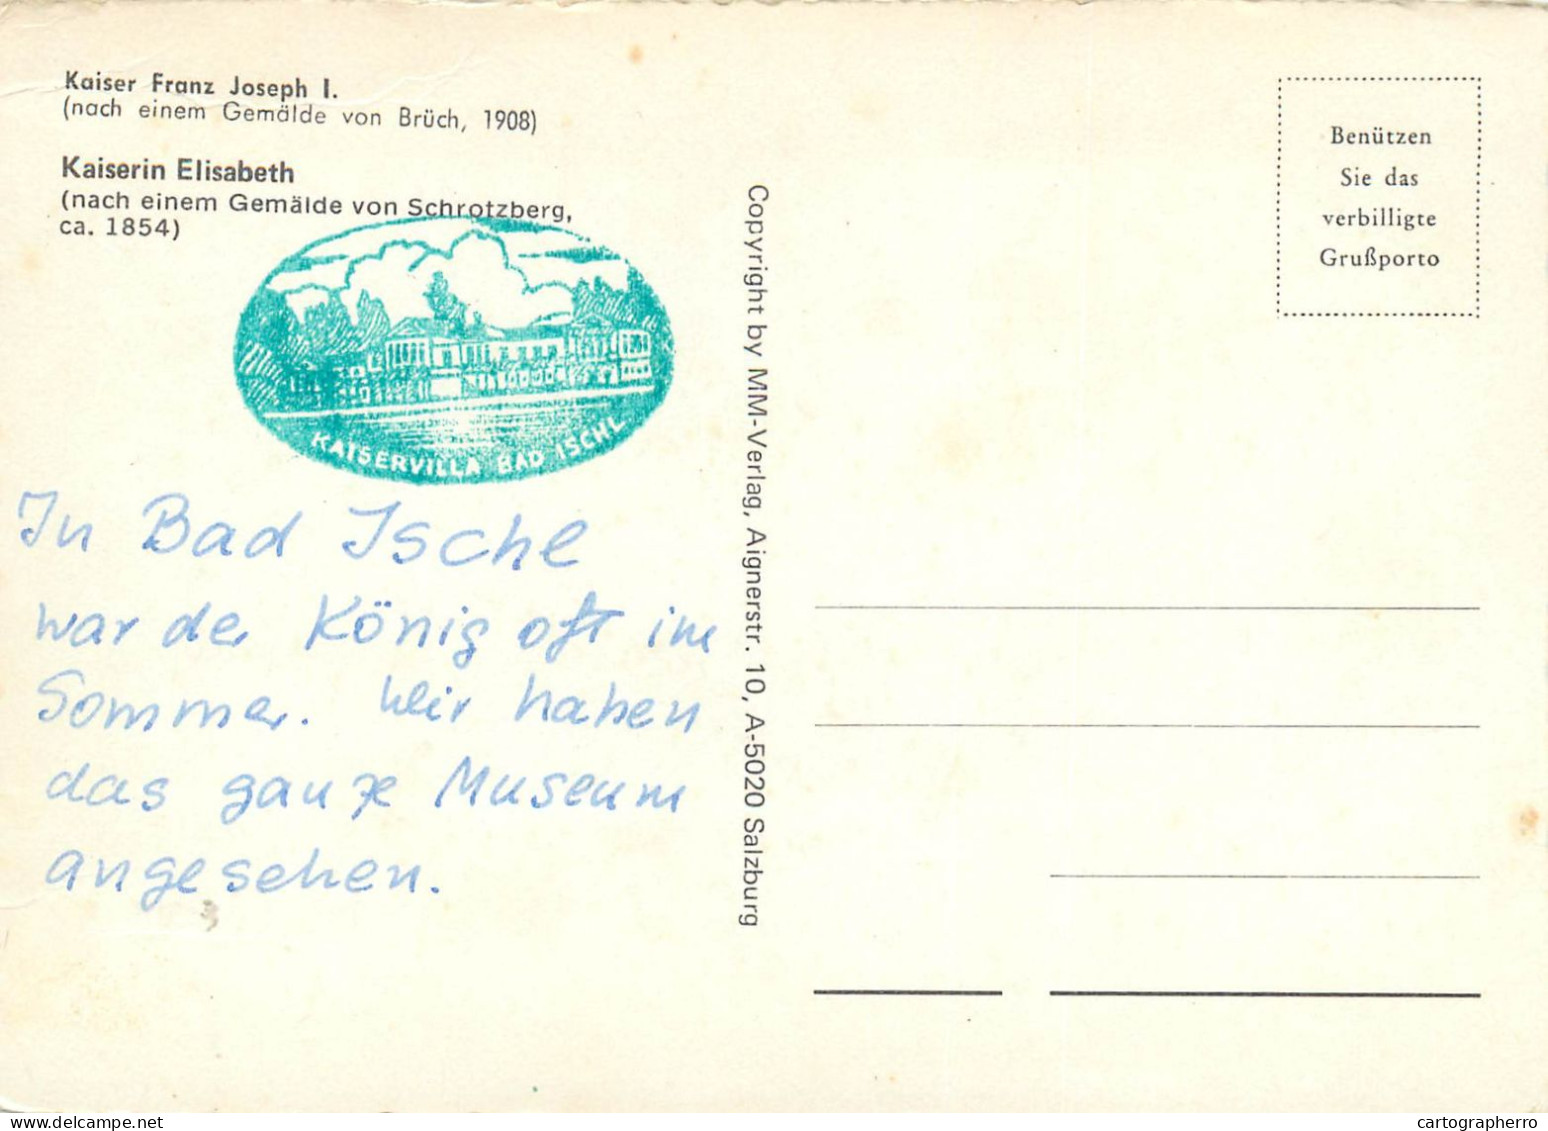 Kaiser Franz Joseph I.
(nach einem Gemälde von Brüch, 1908)
Kaiserin Elisabeth
(nach einem Gemälde von Schrotzberg,
ca. 1854)
KAISERVILLA BAD ISCHL
In Bad Ischl
war der König oft im
Sommer. Wir haben
das ganze Museum
angesehen.
Copyright by MM-Verlag, Aignerstr. 10, A-5020 Salzburg
Benützen
Sie das
verbilligte
Grußporto
cartographerro